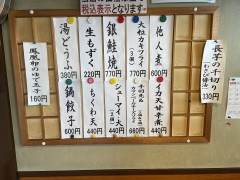 税込表示となります。
長芋の千切り
(わさび醤油)
330円
他人煮
600円
イカ天甘辛煮
440円
大粒カキフライ
(3個)
770円
銀鮭焼
770円
シューマイ
440円
生もずく
220円
ちくわ天
440円
湯どうふ
380円
鍋餃子
600円
鳳凰卵のゆで玉子
160円